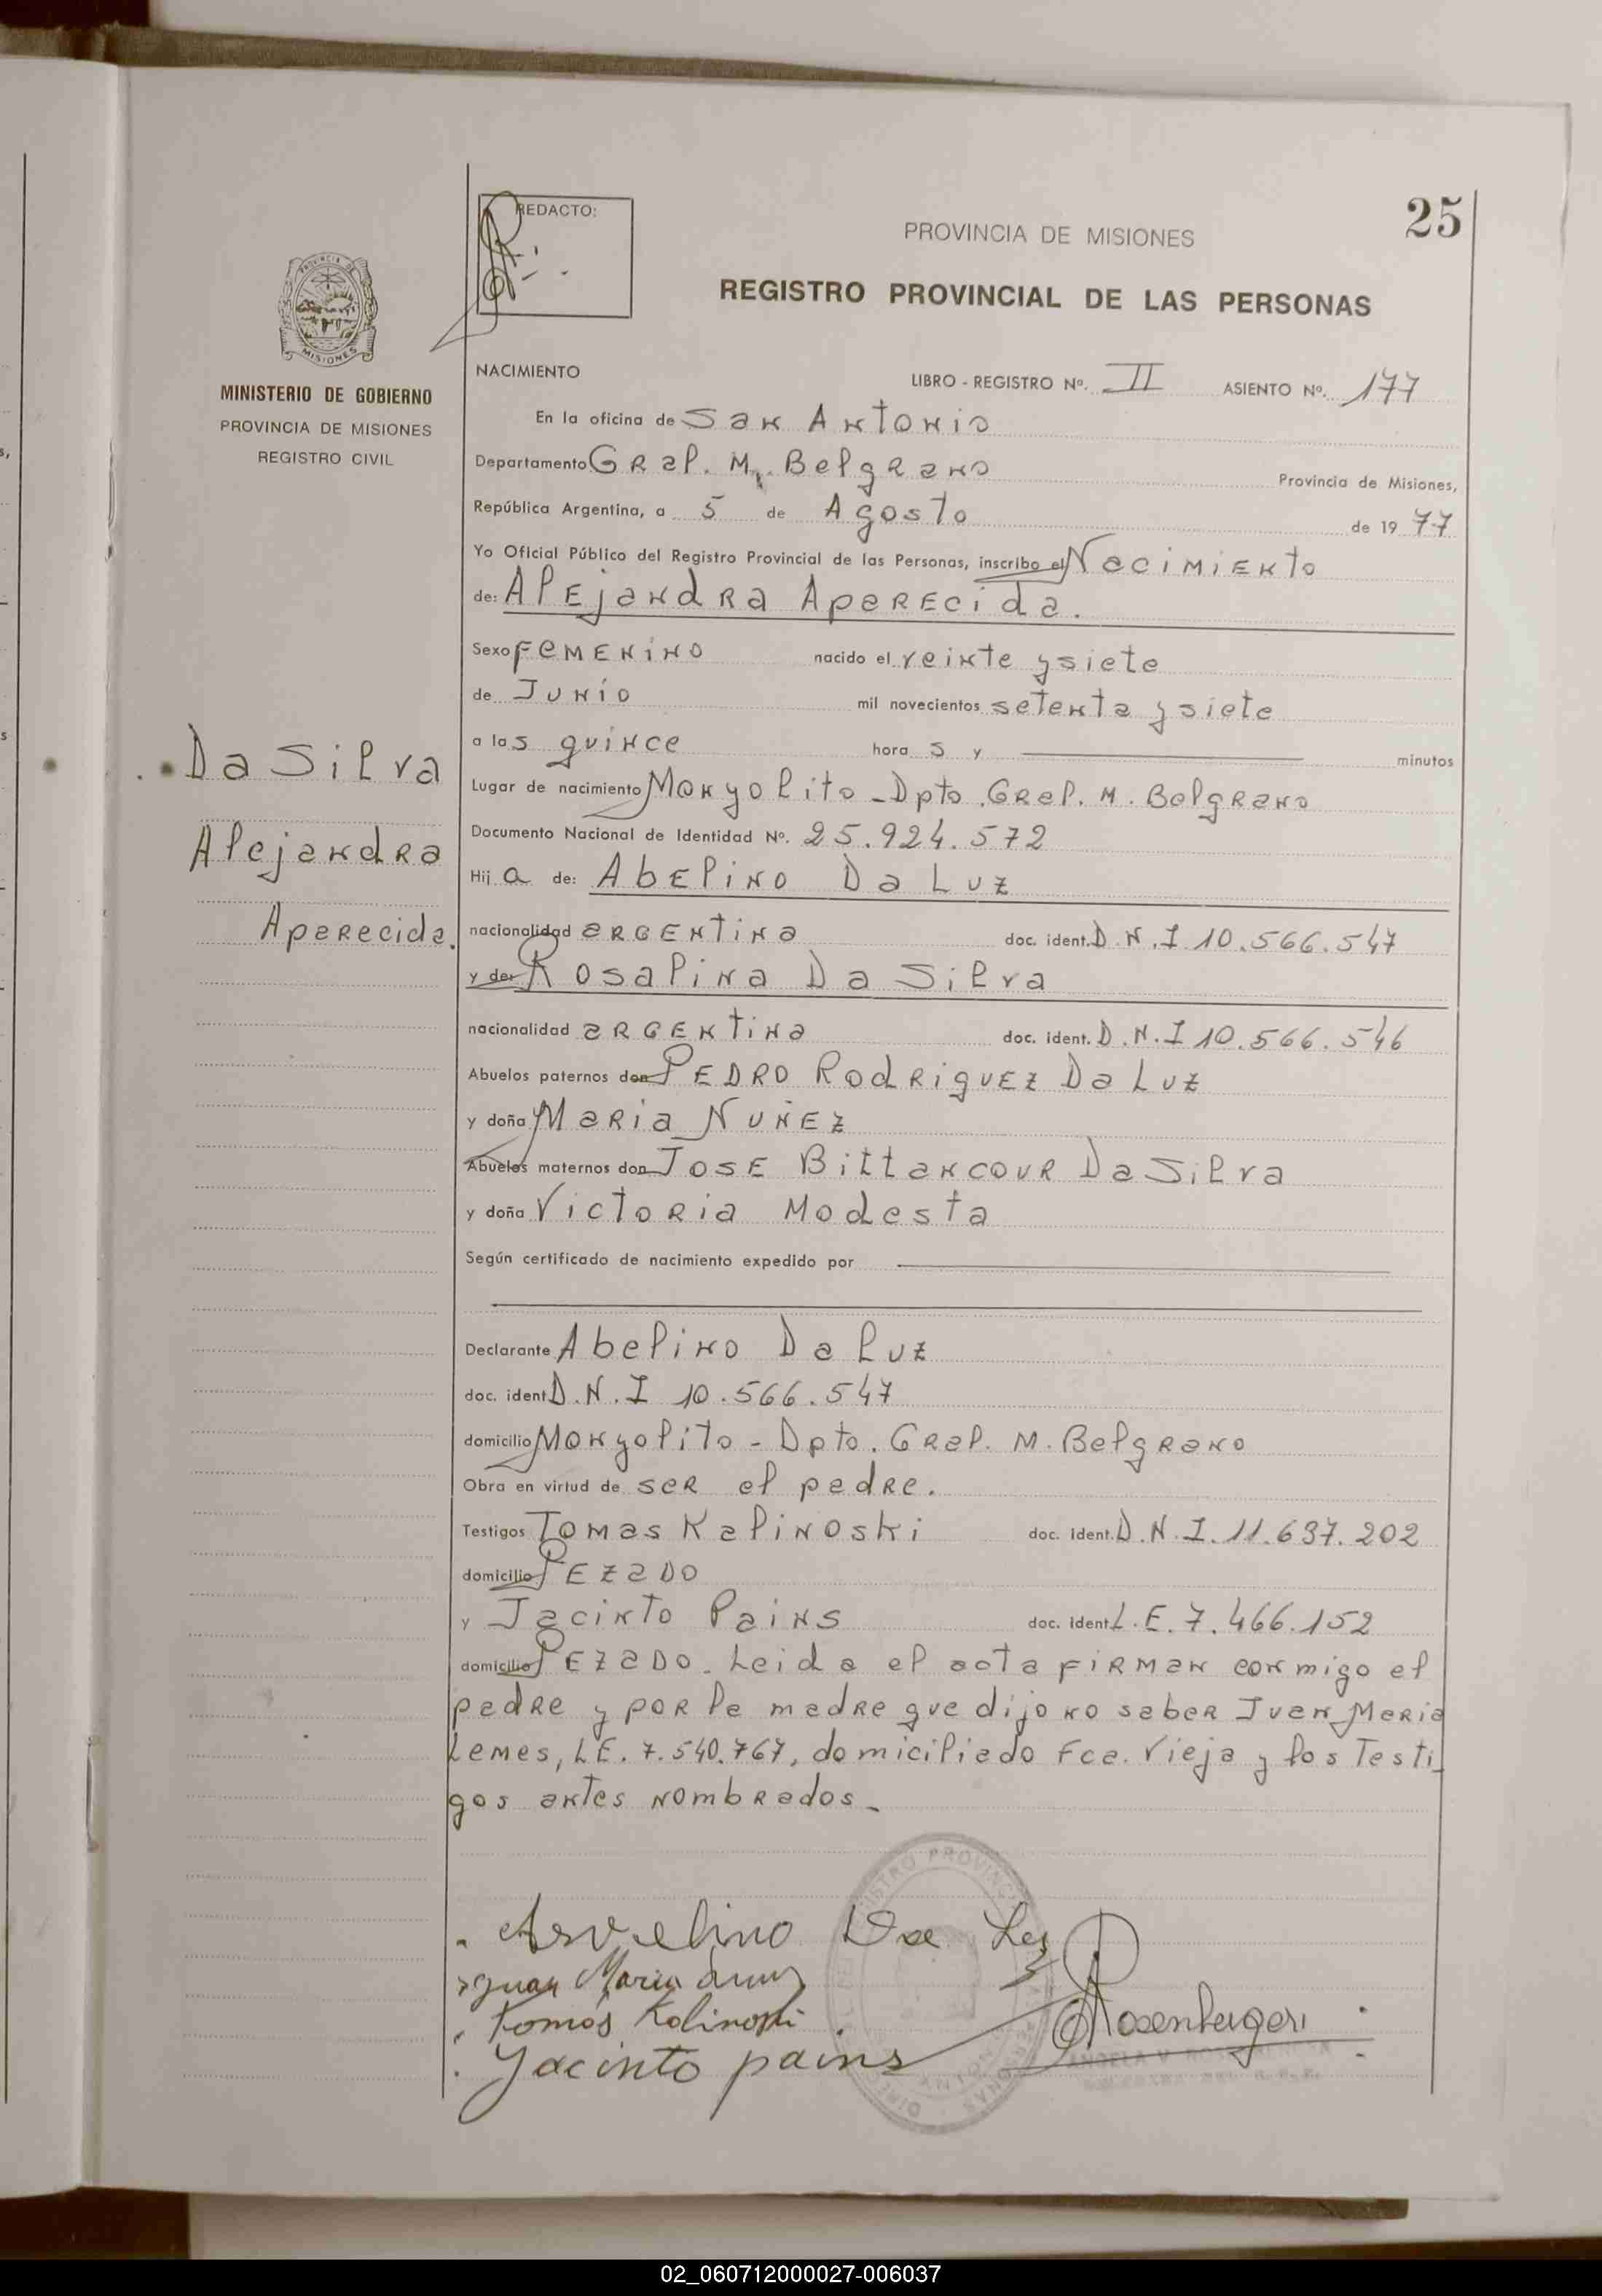 25
REDACTO:
PROVINCIA DE MISIONES
REGISTRO PROVINCIAL DE LAS PERSONAS
PROVINCIA DE
MISIONES
MINISTERIO DE GOBIERNO
PROVINCIA DE MISIONES
REGISTRO CIVIL
NACIMIENTO LIBRO - REGISTRO Nº. II ASIENTO Nº. 177
En la oficina de San Antonio
Departamento Gral. M. Belgrano Provincia de Misiones,
República Argentina, a 5 de Agosto de 19 77
Yo Oficial Público del Registro Provincial de las Personas, inscribo el Nacimiento
de: Alejandra Aparecida.
Sexo Femenino nacido el veinte y siete
de Junio mil novecientos setenta y siete
a las quince hora s y minutos
Lugar de nacimiento Monyolito - Dpto. Gral. M. Belgrano
Documento Nacional de Identidad Nº. 25.924.572
Hij a de: Abelino Da Luz
nacionalidad argentina doc. ident. D.N.I 10.566.547
y de: Rosalina Da Silva
nacionalidad argentina doc. ident. D.N.I 10.566.546
Abuelos paternos don Pedro Rodriguez Da Luz
y doña Maria Nuñez
Abuelos maternos don Jose Bittancour Da Silva
y doña Victoria Modesta
Según certificado de nacimiento expedido por
Declarante Abelino Da Luz
doc. ident D.N.I 10.566.547
domicilio Monyolito - Dpto. Gral. M. Belgrano
Obra en virtud de ser el padre.
Testigos Tomas Kalinoski doc. ident. D.N.I. 11.637.202
domicilio Pezado
y Jacinto Pains doc. ident. L.E. 7.466.152
domicilio Pezado. Leida el acta firman conmigo el
padre y por la madre que dijo no saber Juan Maria
Lemes, LE. 7.540.767, domiciliado Fca. Vieja y los Testi
gos antes nombrados.
Da Silva
Alejandra
Aparecida.
Arvelino Da Luz
Juan Maria
Tomás Kalinoski
Jacinto pains
Rosenberger
02_060712000027-006037